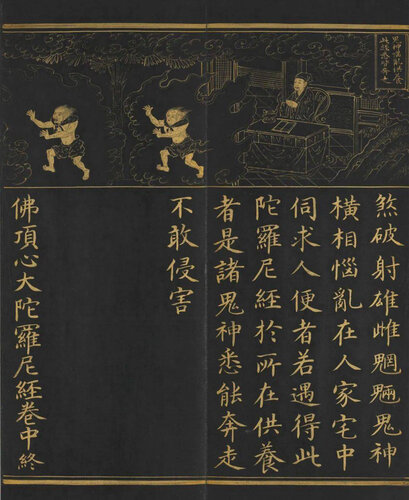 鬼神惱亂供養
此經
煞破射雄雌魍魎鬼神
橫相惱亂在人家宅中
伺求人便者若遇得此
陀羅尼經於所在供養
者是諸鬼神悉能奔走
不敢侵害
佛頂心大陀羅尼經卷中終